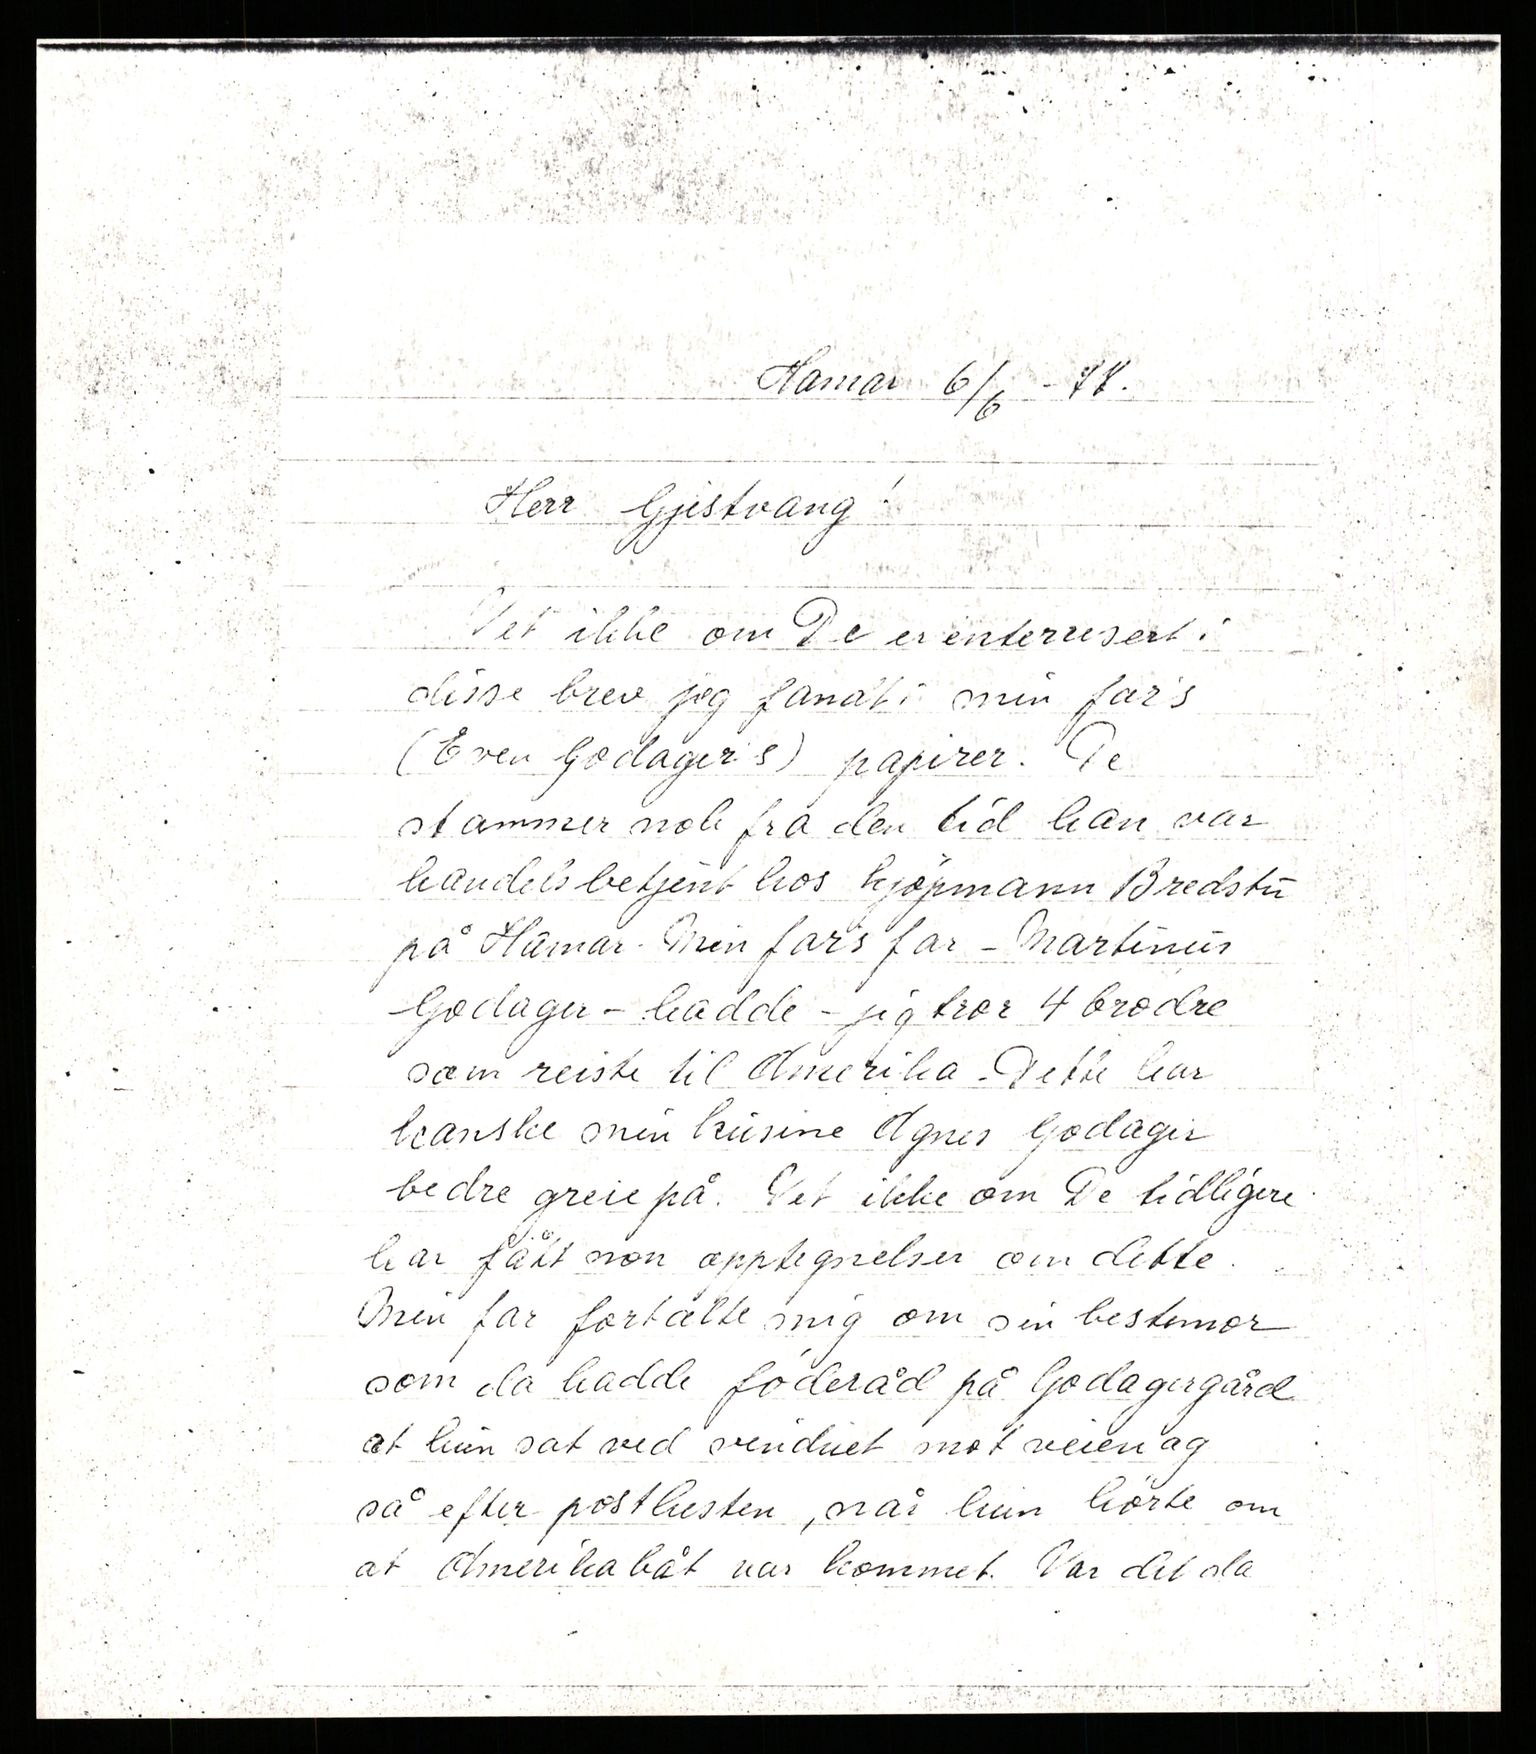 Hamar 6/6 - 77.
Herr Gjestvang!
Vet ikke om De er enterresert i
disse brev jeg fandt i min far's
(Even Godager's) papirer. De
stammer nok fra den tid han var
handelsbetjent hos kjøpmann Bredstu
på Hamar. Min fars far – Martinus
Godager – hadde – jeg tror 4 brødre
som reiste til Amerika. Dette har
kanske min kusine Agnes Godager
bedre greie på. Vet ikke om De tidligere
har fått non opptegnelser om dette.
Min far fortalte mig om sin bestemor
som da hadde föderåd på Godagergård
at hun sat ved vinduet mot veien og
så efter posthesten, når hun hörte om
at Amerikabåt var kommet. Var det da